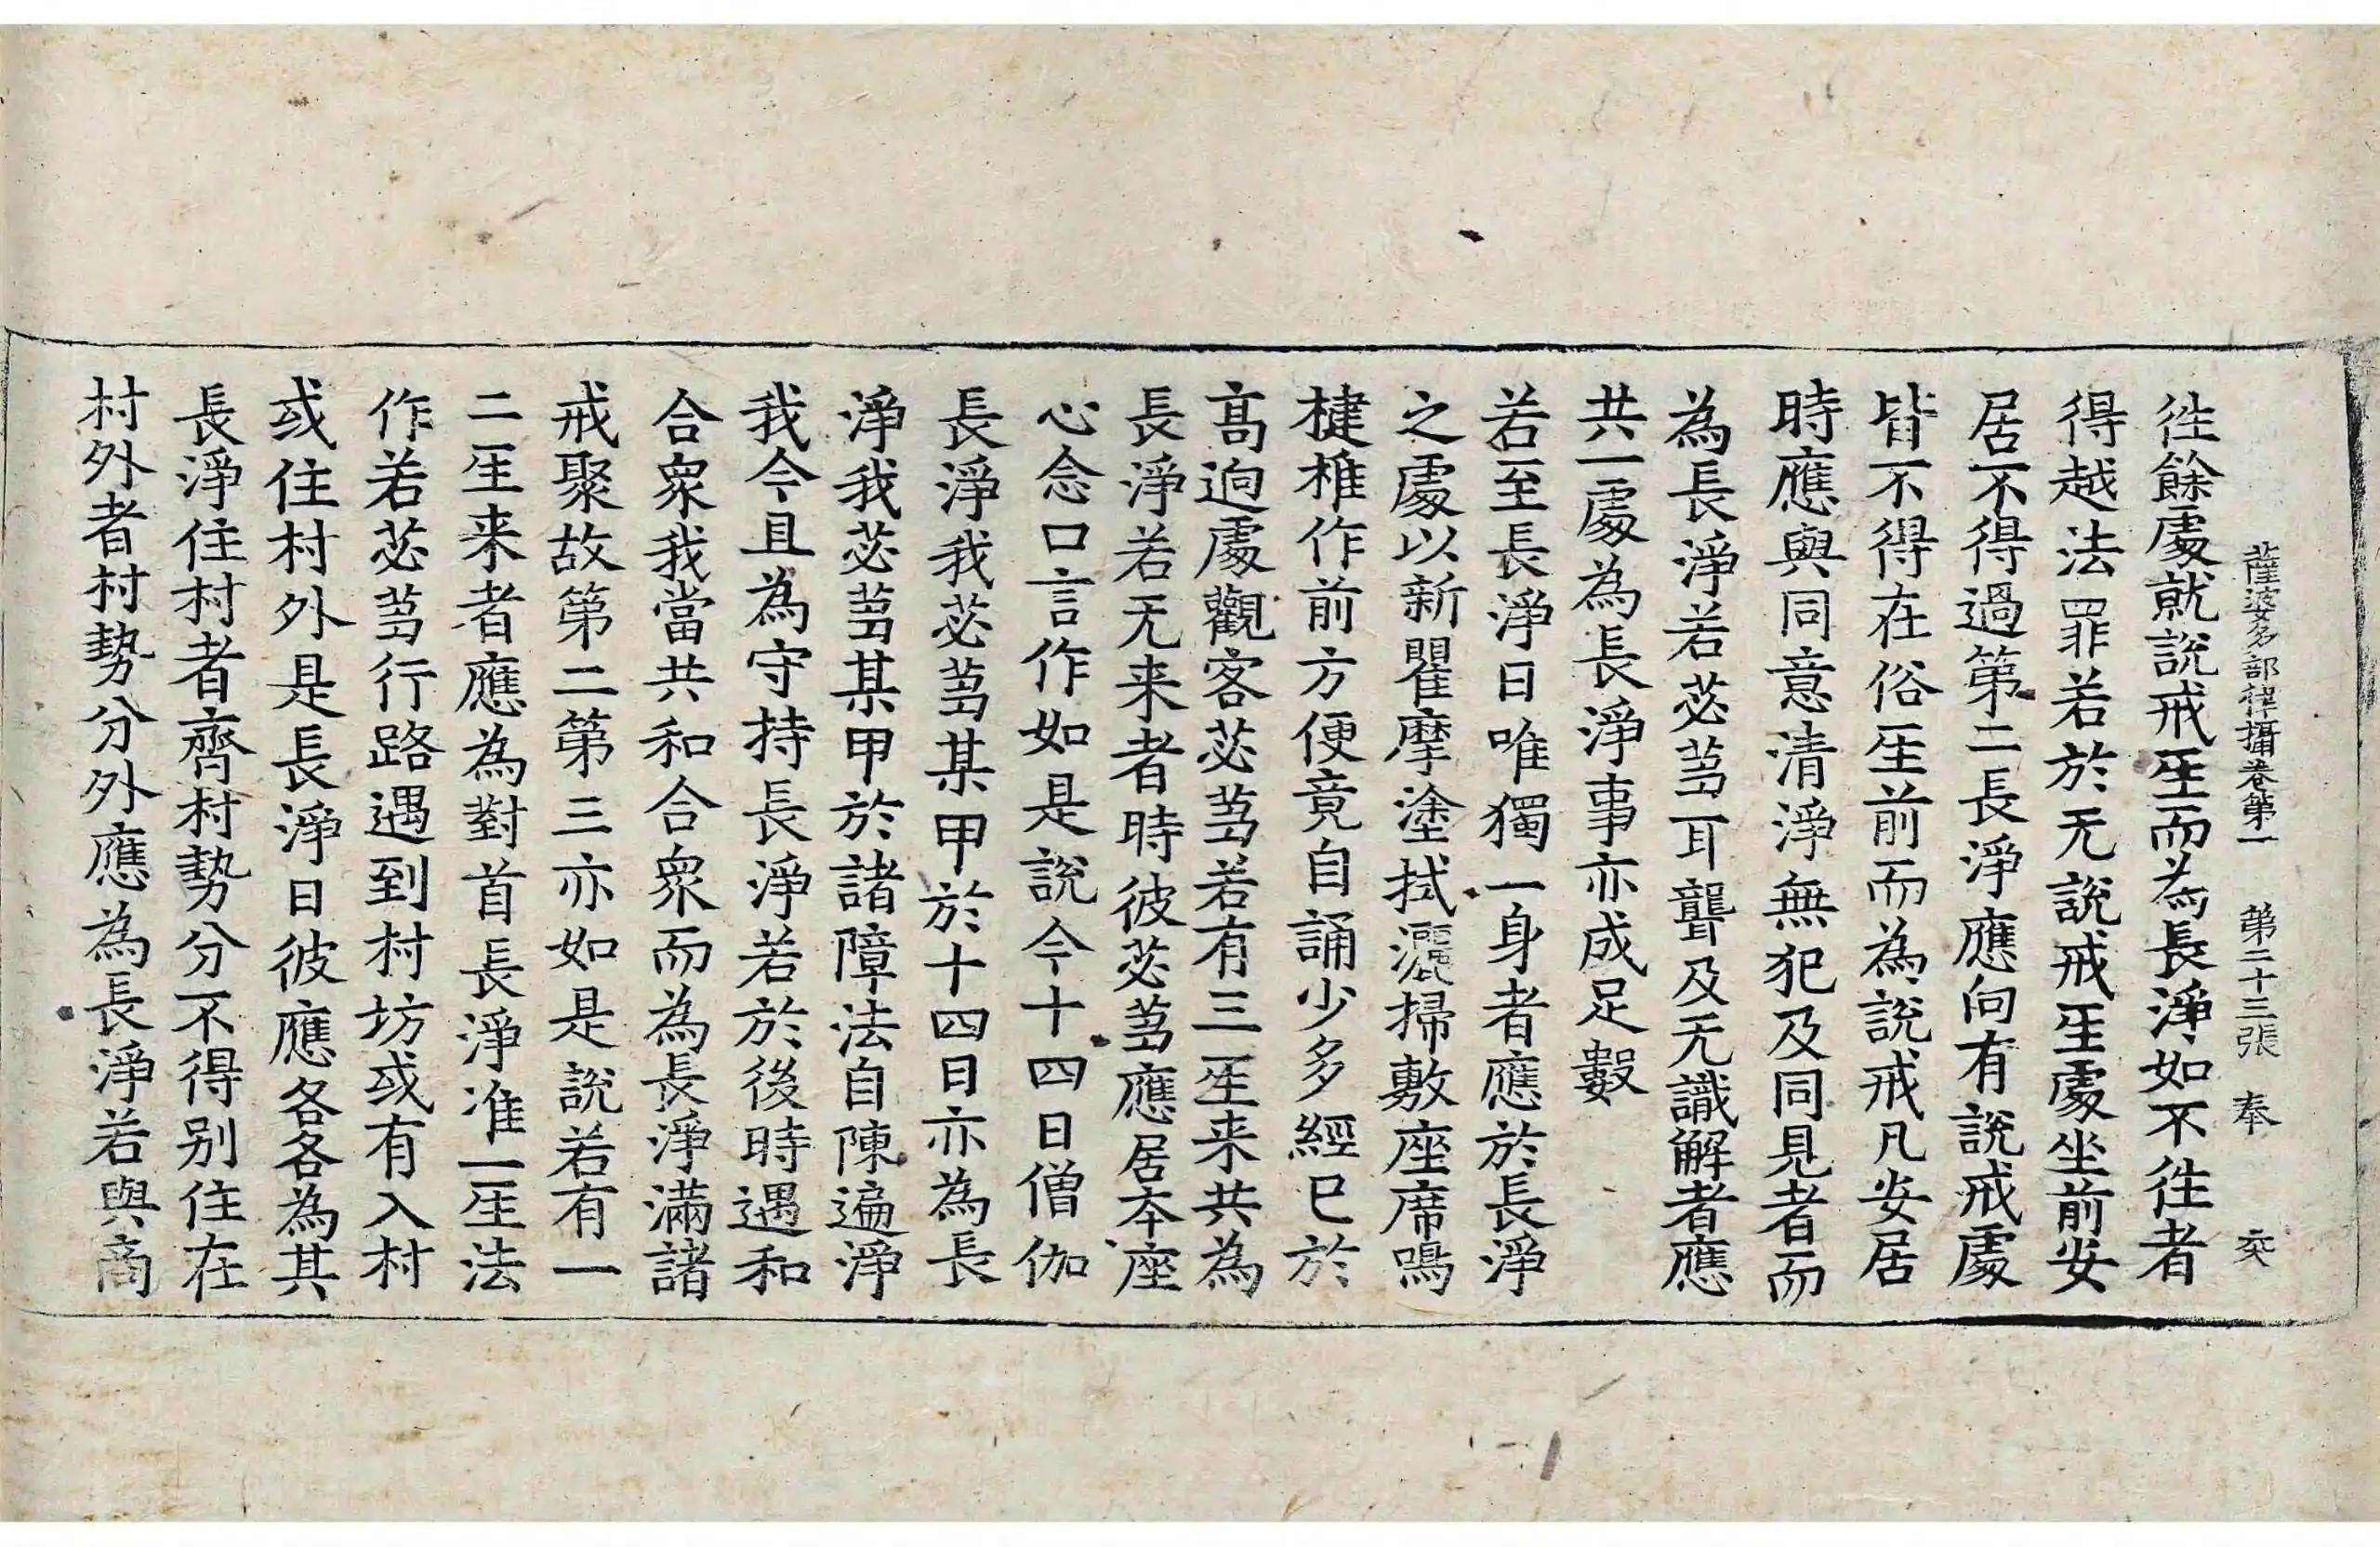 薩婆多部律攝卷第一　第二十三張　奉
往餘處就說戒𤯔而為長淨如不往者
得越法罪若於无說戒𤯔處坐前安
居不得過第二長淨應向有說戒處
皆不得在俗𤯔前而為說戒凡安居
時應與同意清淨無犯及同見者而
為長淨若苾蒭耳聾及无識解者應
共一處為長淨事亦成足數
若至長淨日唯獨一身者應於長淨
之處以新瞿摩塗拭灑掃敷座席鳴
楗椎作前方便竟自誦少多經已於
高逈處觀客苾蒭若有三𤯔来共為
長淨若无来者時彼苾蒭應居本座
心念口言作如是說今十四日僧伽
長淨我苾蒭某甲於十四日亦為長
淨我苾蒭某甲於諸障法自陳遍淨
我今且為守持長淨若於後時遇和
合眾我當共和合眾而為長淨滿諸
戒聚故第二第三亦如是說若有一
二𤯔来者應為對首長淨准一𤯔法
作若苾蒭行路遇到村坊或有入村
或住村外是長淨日彼應各各為其
長淨住村者齊村勢分不得別住在
村外者村勢分外應為長淨若與商